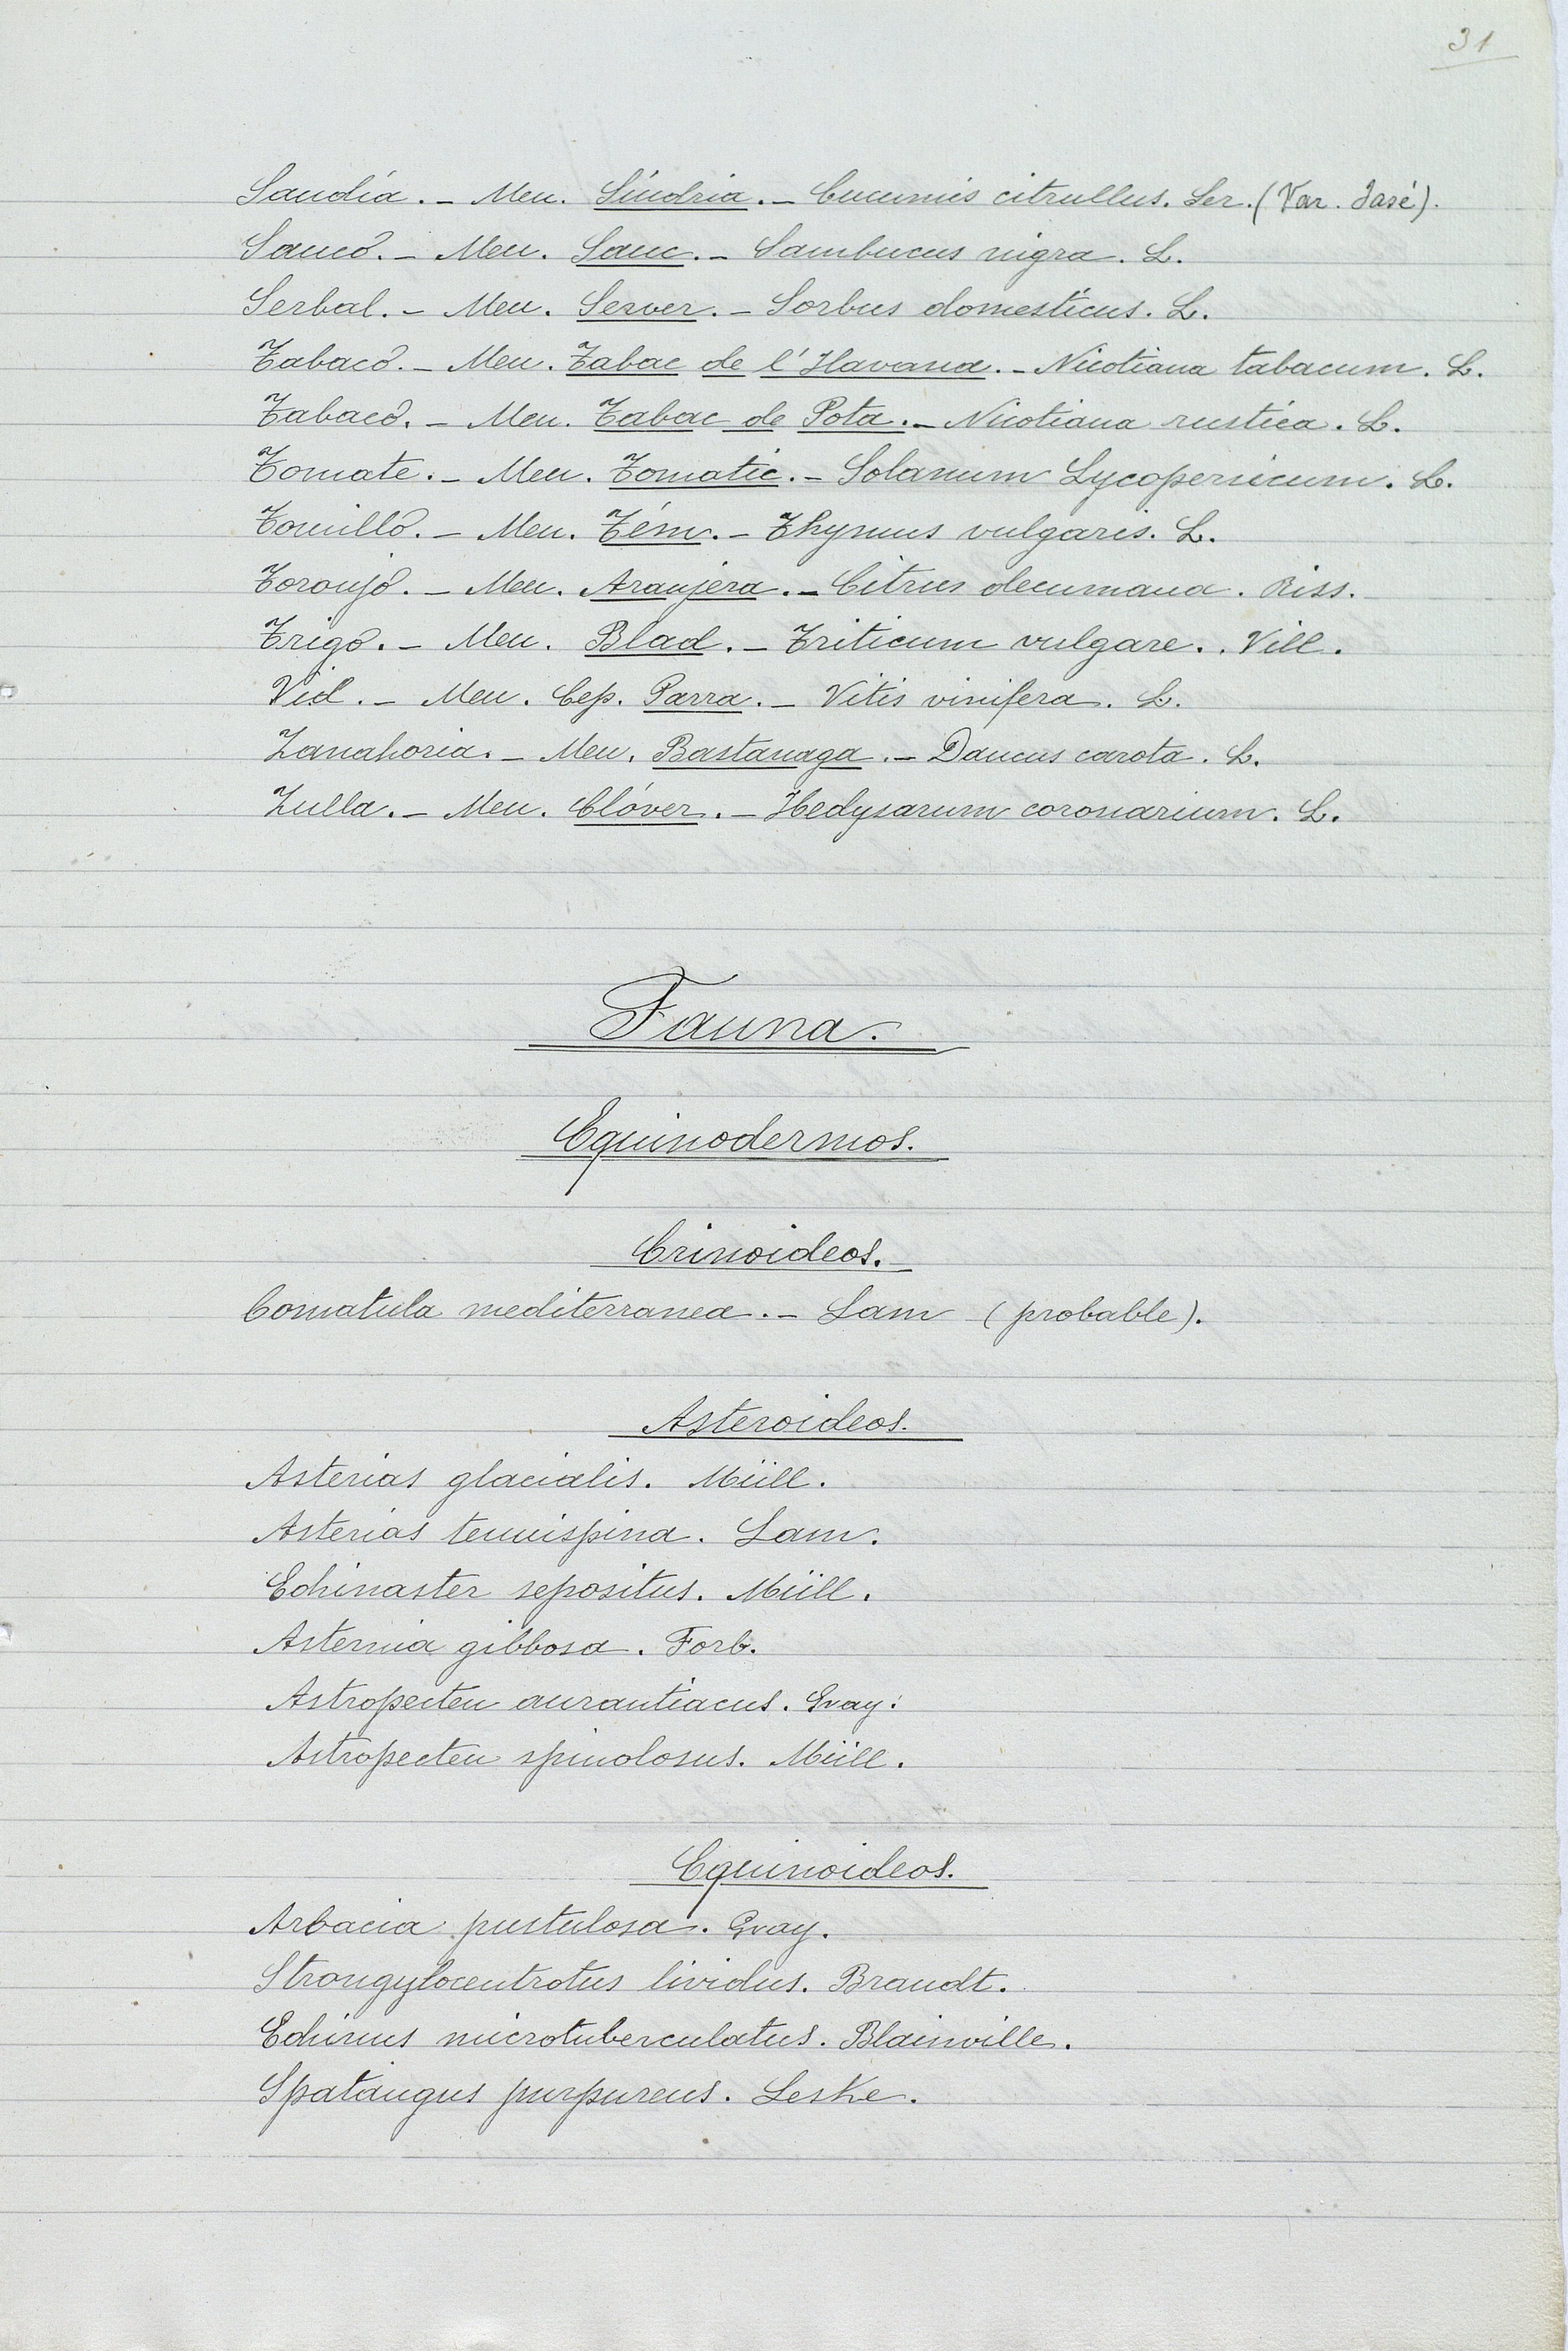 31
Sandía. - Men. Síndria. - Cucumis citrullus. Ser. (Var. Jasé).
Sauco. - Men. Sauc. - Sambucus nigra. L.
Serbal. - Men. Server. - Sorbus domesticus. L.
Tabaco. - Men. Tabac de l'Havana. - Nicotiana tabacum. L.
Tabaco. - Men. Tabac de Pota. - Nicotiana rustica. L.
Tomate. - Men. Tomatic. - Solanum Lycopersicum. L.
Tomillo. - Men. Tém. - Thymus vulgaris. L.
Toronjo. - Men. Aranjera. - Citrus decumana. Riss.
Trigo. - Men. Blad. - Triticum vulgare. Vill.
Vid. - Men. Cep. Parra. - Vitis vinifera. L.
Zanahoria. - Men. Bastanaga. - Daucus carota. L.
Zulla. - Men. Clóver. - Hedysarum coronarium. L.
Fauna.
Equinodermos.
Crinoideos.
Comatula mediterranea. - Lam (probable).
Asteroideos.
Asterias glacialis. Müll.
Asterias tenuispina. Lam.
Echinaster sepositus. Müll.
Asternia gibbosa. Forb.
Astropecten aurantiacus. Gray.
Astropecten spinolosus. Müll.
Equinoideos.
Arbacia pustulosa. Gray.
Strongylocentrotus lividus. Brandt.
Echinus microtuberculatus. Blainville.
Spatangus purpureus. Leske.